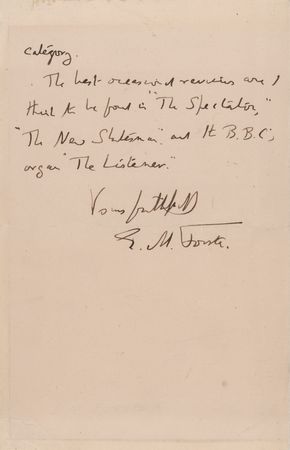 category.
The best occasional reviews are I
think to be found in "The Spectator,"
"The New Statesman" and the B.B.C's
organ "The Listener."
Yours faithfully
E. M. Forster.